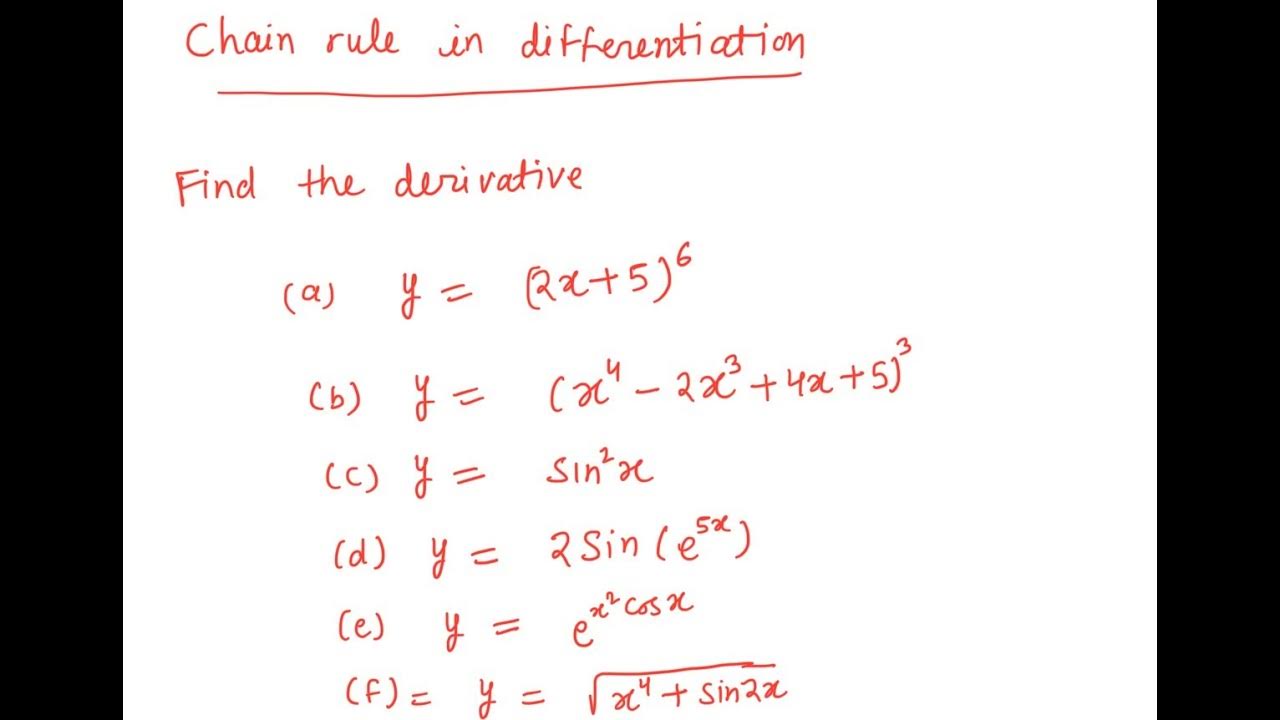 Chain rule in differentiation
Find the derivative
(a) y = (2x+5)⁶
(b) y = (x⁴ - 2x³ + 4x + 5)³
(c) y = sin²x
(d) y = 2 Sin (e⁵ˣ)
(e) y = e^(x² cosx)
(f) = y = √(x⁴ + sin2x)